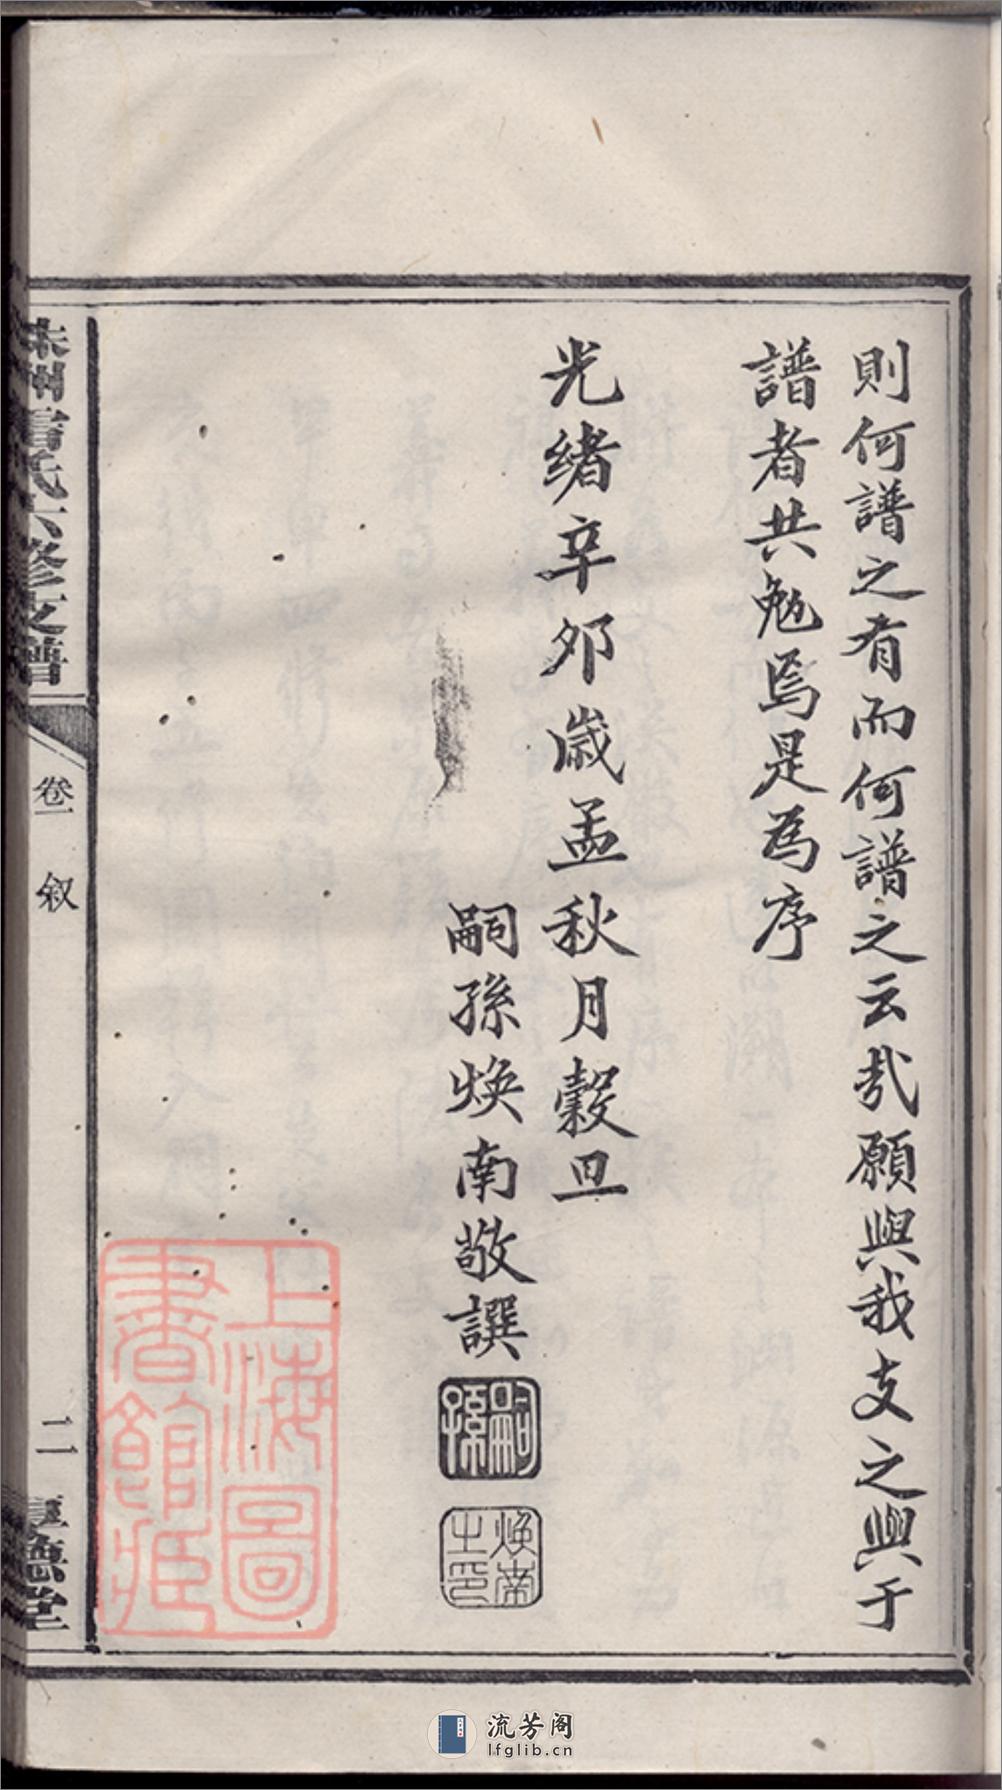 則何譜之有而何譜之云哉願與我支之與于
譜者共勉焉是為序
光緒辛夘歲孟秋月穀旦
嗣孫煥南敬譔
嗣孫
煥南之印
氏六修支譜
卷一 敘
二 厚德堂
上海圖書館藏
流芳阁
lfglib.cn